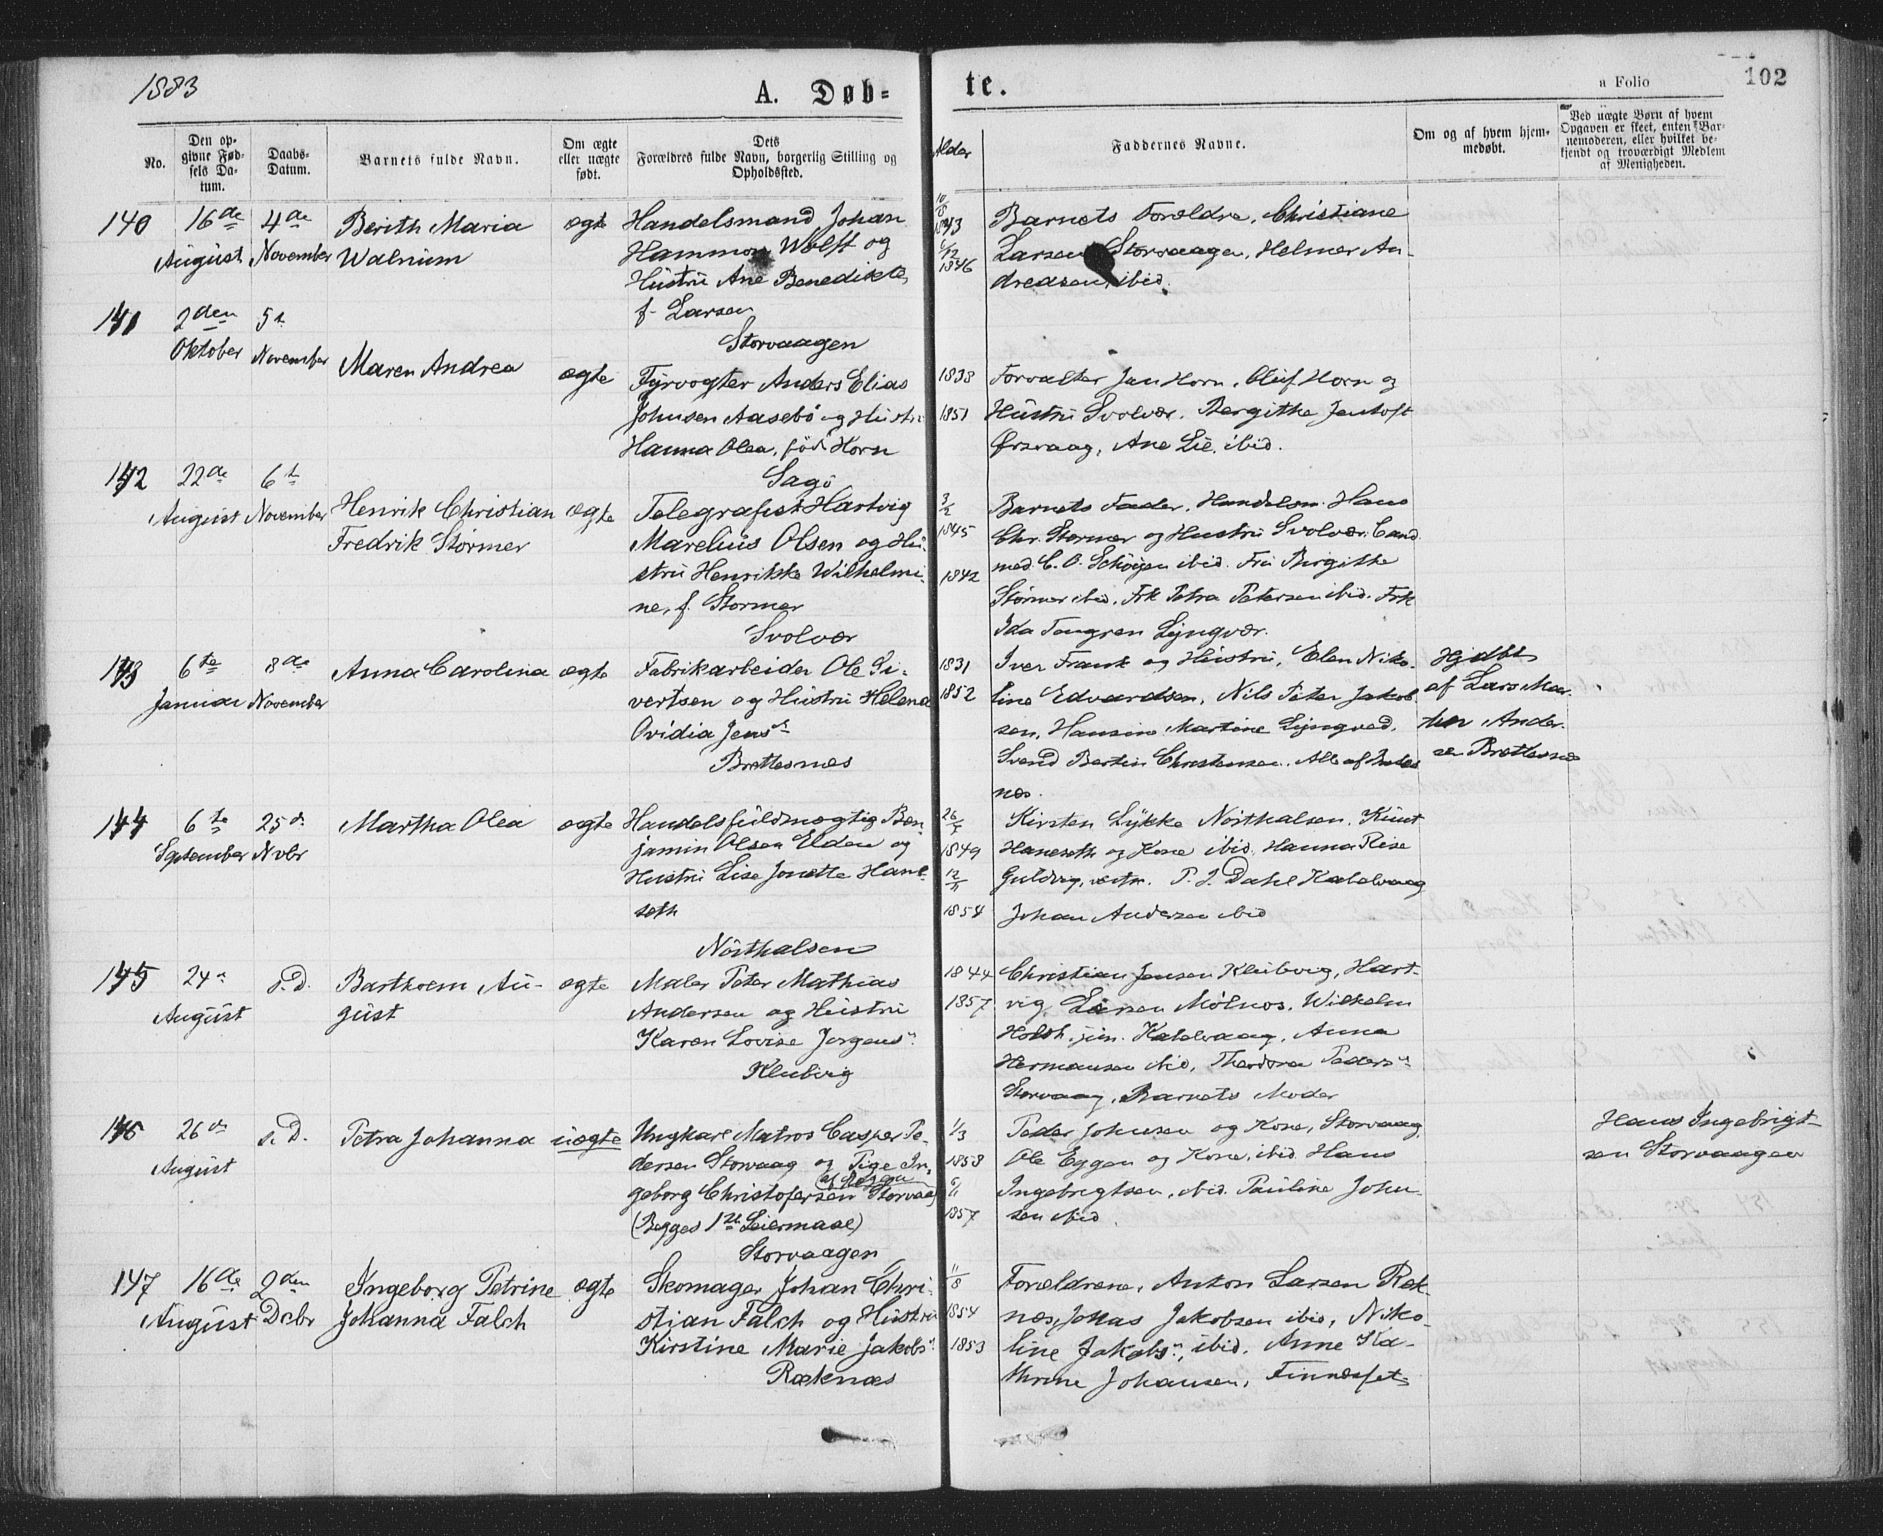 1883
A. Døb-
te.
a Folio
102
No.
Den op-
givne Fød-
sels Da-
tum.
Daabs-
Datum.
Barnets fulde Navn.
Om ægte
eller uægte
født.
Dets
Forældres fulde Navn, borgerlig Stilling og
Opholdsted.
Alder
Faddernes Navne.
Om og af hvem hjem-
medøbt.
Ved uægte Børn af hvem
Opgaven er skeet, enten Bar-
nemoderen, eller hvilket be-
kjendt og troværdigt Medlem
af Menigheden.
140 16de August 4de November
Berith Maria
Walnum
ægte
Handelsmand Johan
Hammon Wolff og
Hustru Ane Benedikte,
f. Larsen
Storvaagen
1843
1846
Barnets Forældre, Christiane
Larsen Storvaagen, Helmer An-
dreasen, ibid.
141 2den Oktober 5t November
Maren Andrea
ægte
Fyrvogter Anders Elias
Johnsen Aasebø og Hustru
Hanna Olea, född Horn
Sagö
1838
1851
Forvalter Jan Horn, Oluf Horn og
Hustru Svolvær. Bergithe Jentoft
Ørsvaag, Ane Lie, ibid.
142 22de August 6t November
Henrik Christian
Fredrik Størmer
ægte
Telegrafist Hartvig
Marelius Olsen og Hu-
stru Henrikke Wilhelmi-
ne, f. Stormer
Svolvær
3/2
1845
1842
Barnets Fader, Handelsm. Hans
Chr. Stormer og Hustru Svolvær. Cand
med. C. O. Schöyen ibid. Fru Birgithe
Störmer ibid. Frk Petra Petersen ibid. Frk
Ida Tengren Lyngvær.
143 6te Januar 8de November
Anna Carolina
ægte
Fabrikarbeider Ole Si-
vertsen og Hustru Helena
Ovidia Jensn
Brettesnæs
1831
1852
Iver Frank og Hustru, Elen Niko-
line Edvardsen, Nils Peter Jakob
sen, Hansine Martine Lyngved,
Svend Bertin Christensen. Alle af Brettes
næs.
Hjdbt
af Lars Mar-
ten Ander-
sen Brettesnæs
144 6te September 25d Nvbr
Martha Olea
ægte
Handelsfuldmægtig Ben-
jamin Olsen Elden og
Hustru Lise Jonette Hane-
seth
Nörthalsen
1849
12/11
1854
Kirsten Lykke Nörthalsen, Knut
Haneseth og Kone ibid. Hanna Rise
Guldvig, P. J. Dahl Kalelvaag
Johan Andersen ibid
145 24n August s. D.
Barthoem Au-
gust
ægte
Maler Peter Mathias
Andersen og Hustru
Karen Lovise Jorgensn
Kleivig
1844
1857
Christian Jensen Kleivig, Hart-
vig Larsen Mölnos, Wilhelm
Holdt jun. Kalelvaag, Anna
Hermansen ibid, Theodora Pedersn
Storvaag, Barnets Moder
146 26de August s. D.
Petra Johanna
uægte
Ungkarl Matros Casper Pe-
dersen Storvaag og Pige In-
geborg Christofersen Storvaag
(Begges 1st Leiermaal)
Storvaagen
1/3
1858
1857
Peder Johnsen og Kone, Storvaag,
Ole Eggen og Kone, ibid. Hans
Ingebrigtsen, ibid. Pauline John-
sen ibid.
Hans Ingebrigt-
sen Storvaagen
147 16de August 2den Dcbr
Ingeborg Petrine
Johanna Falch
ægte
Skomager Johan Chri-
stian Falch og Hustru
Kirstine Marie Jakobsn
Ræknæs
11/8
1854
1853
Forældrene, Anton Larsen Ræk-
næs, Johas Jakobsen ibid, Niko-
line Jakobsn, ibid. Anne Ka-
thrine Johansen, Finnæsset